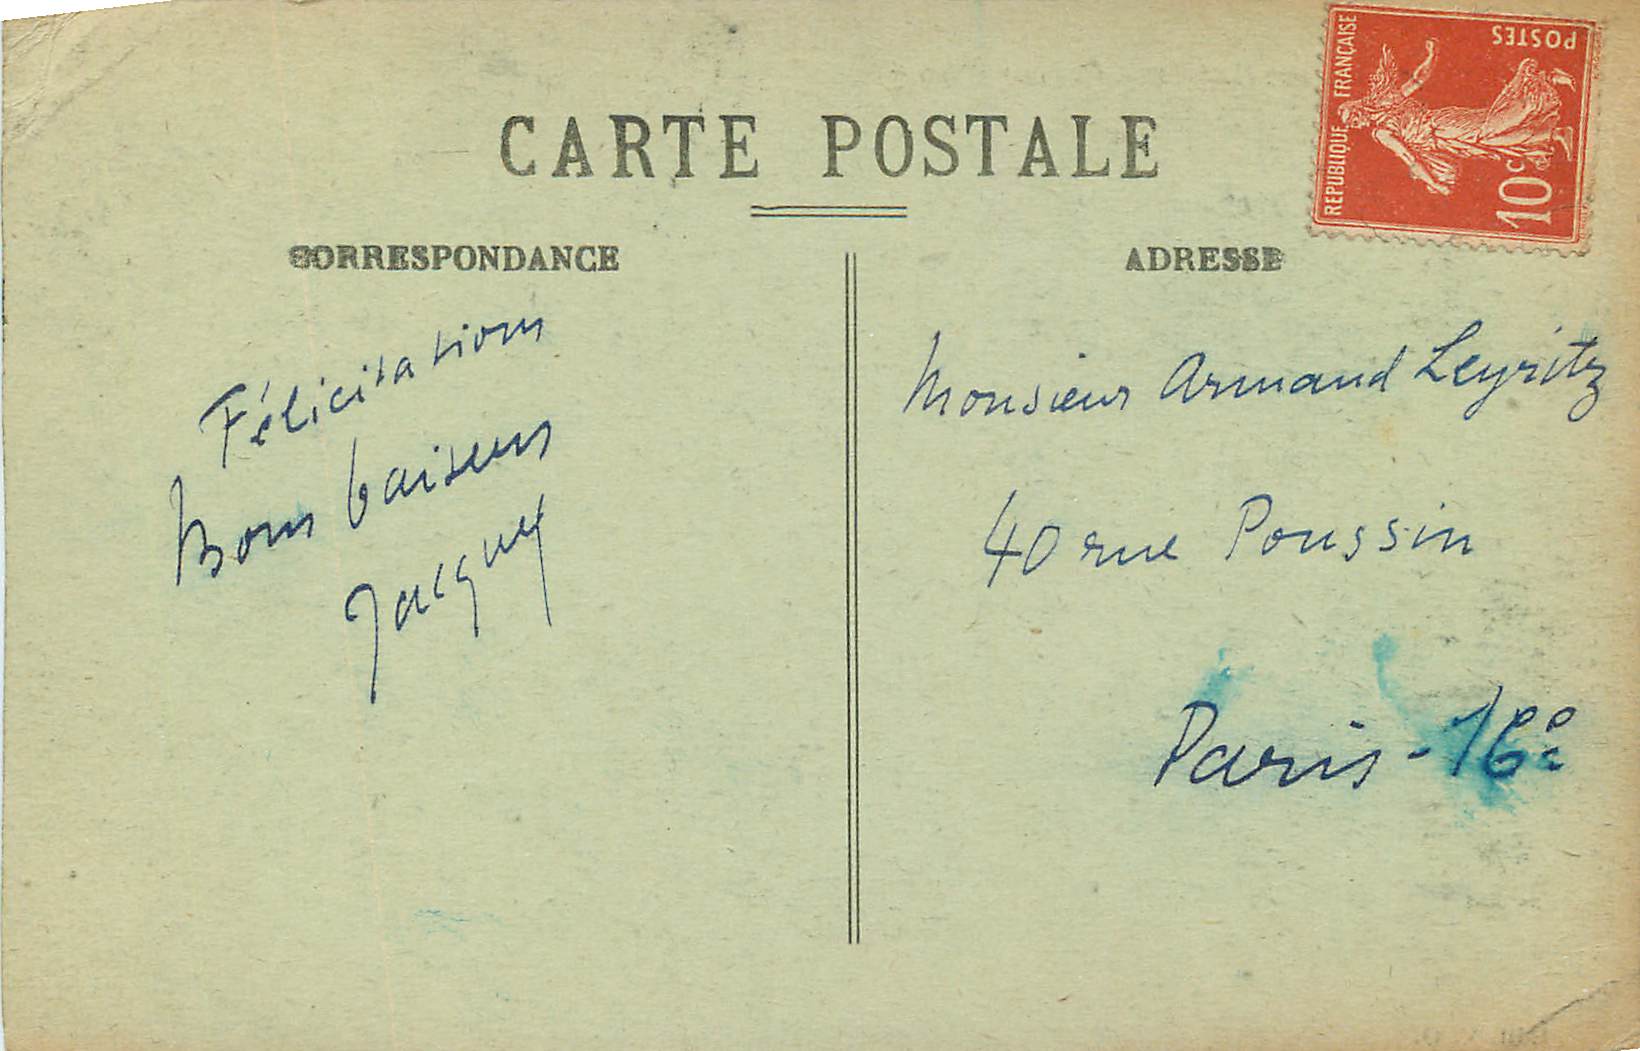 CARTE POSTALE
CORRESPONDANCE
ADRESSE
REPUBLIQUE FRANÇAISE
POSTES
10c
Félicitations
Bons baisers
Jacques
Monsieur Armand Leyritz
40 rue Poussin
Paris-16e